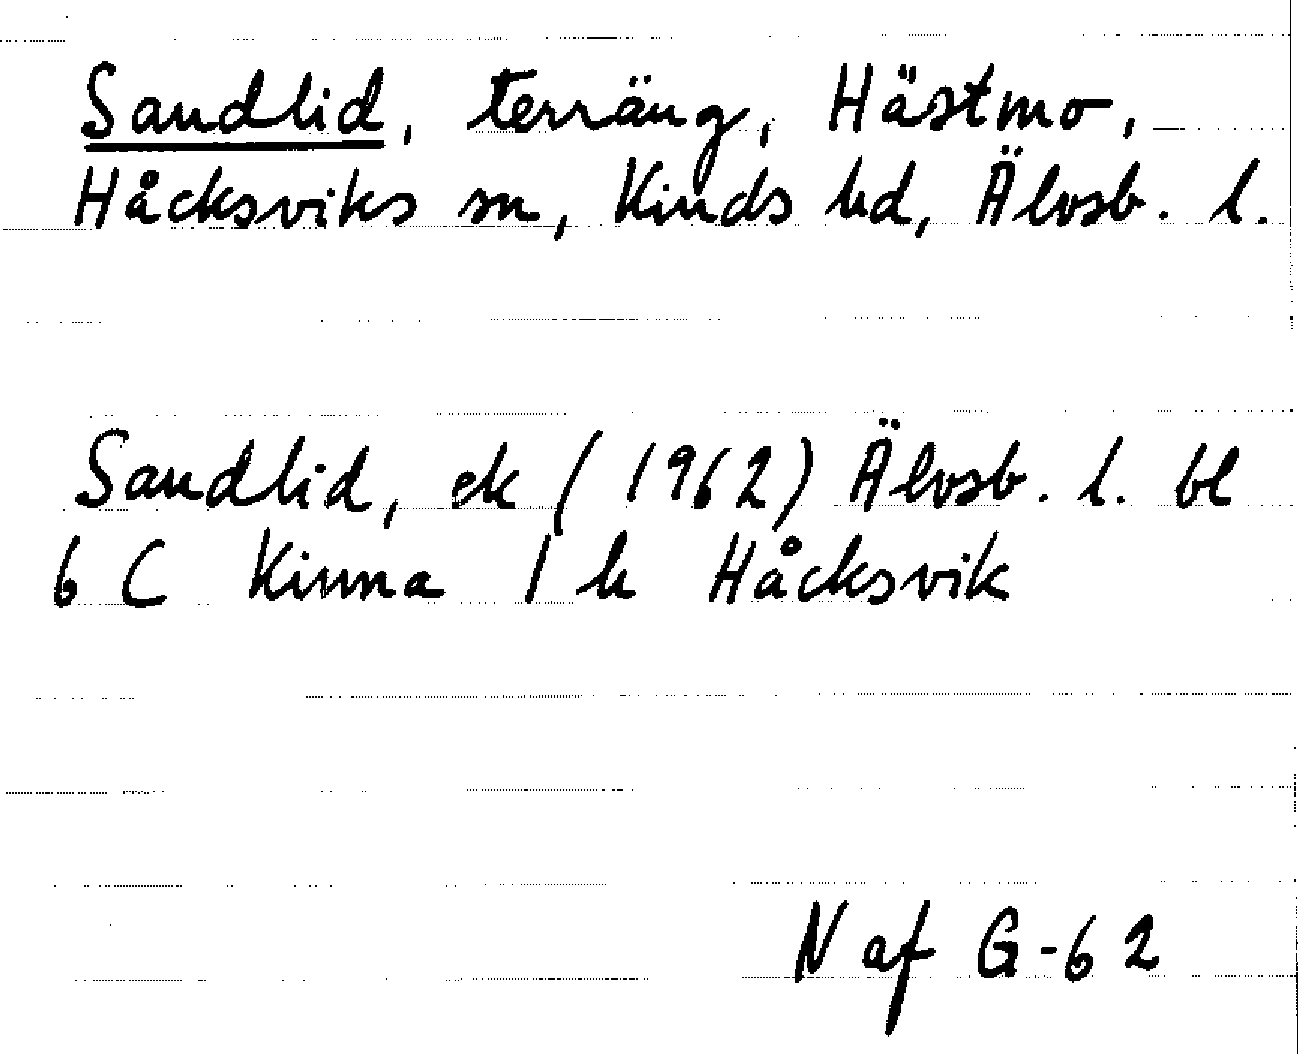 Sandlid, terräng, Hästmo,
Håcksviks sn, Kinds hd, Älvsb. l.
Sandlid, ek (1962) Älvsb. l. bl
6 C Kinna 1 h Håcksvik
N af G-62